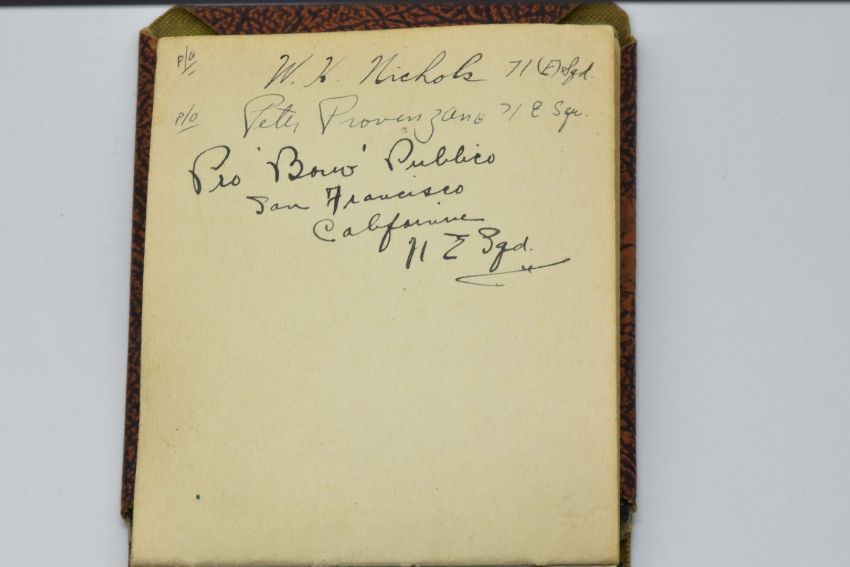 P/O W. H. Nichols 71 (E) Sqd.
P/O Peter Provenzano 71 E Sqr.
Pro 'Bono' Publico
San Francisco
California
71 E Sqd.